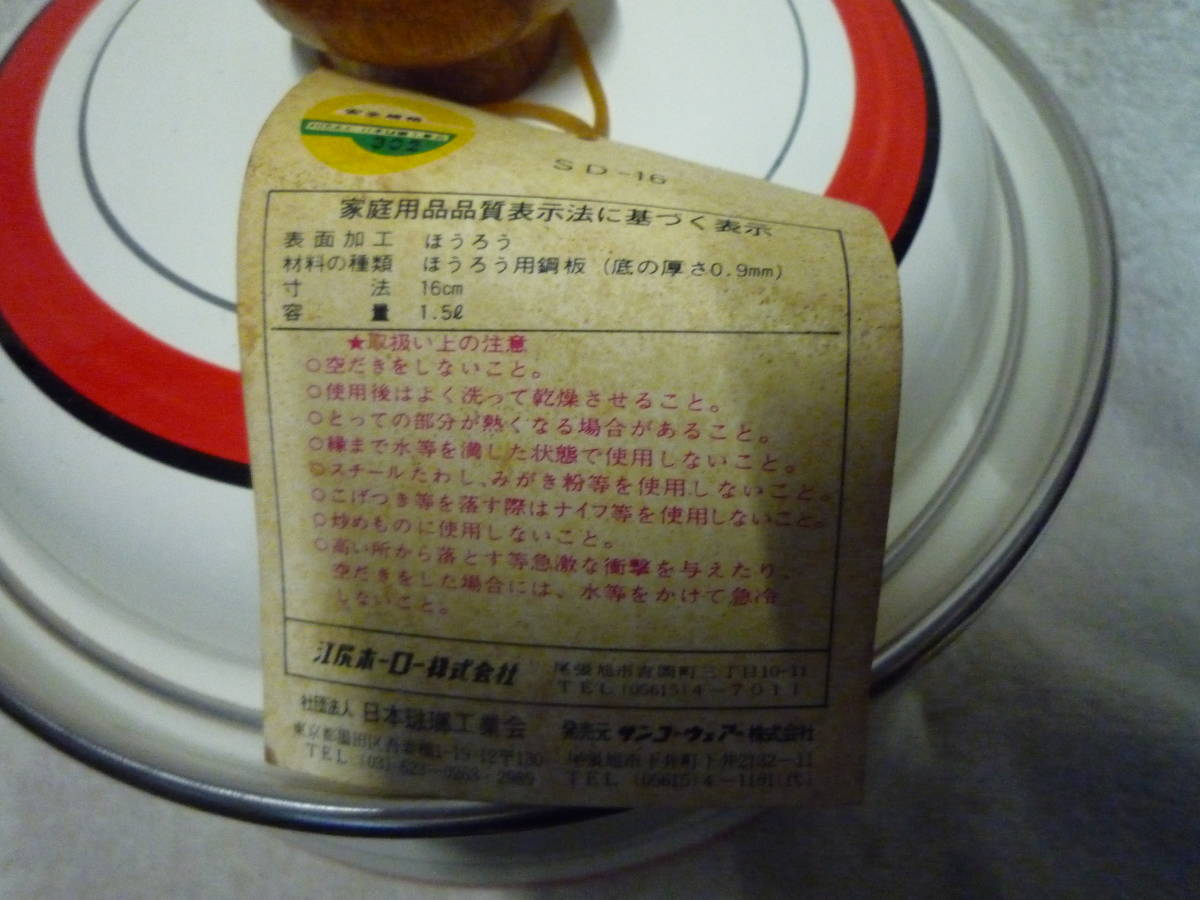 安全規格
302
SD-16
家庭用品品質表示法に基づく表示
表面加工 ほうろう
材料の種類 ほうろう用鋼板 (底の厚さ0.9mm)
寸法 16cm
容量 1.5ℓ
★取扱い上の注意
○空だきをしないこと。
○使用後はよく洗って乾燥させること。
○とっての部分が熱くなる場合があること。
○縁まで水等を満した状態で使用しないこと。
○スチールたわし、みがき粉等を使用しないこと。
○こげつき等を落す際はナイフ等を使用しないこと。
○炒めものに使用しないこと。
○高い所から落とす等急激な衝撃を与えたり、
空だきをした場合には、水等をかけて急冷
しないこと。
江尻ホーロー株式会社
尾張旭市吉岡町三丁目10-11
TEL (05615) 4-7011
社団法人 日本琺瑯工業会
東京都墨田区吾妻橋1-19-12〒130
TEL (03)
発売元 サンコーウェアー株式会社
尾張旭市下井町下井2132-11
TEL (05615) 4-1181(代)